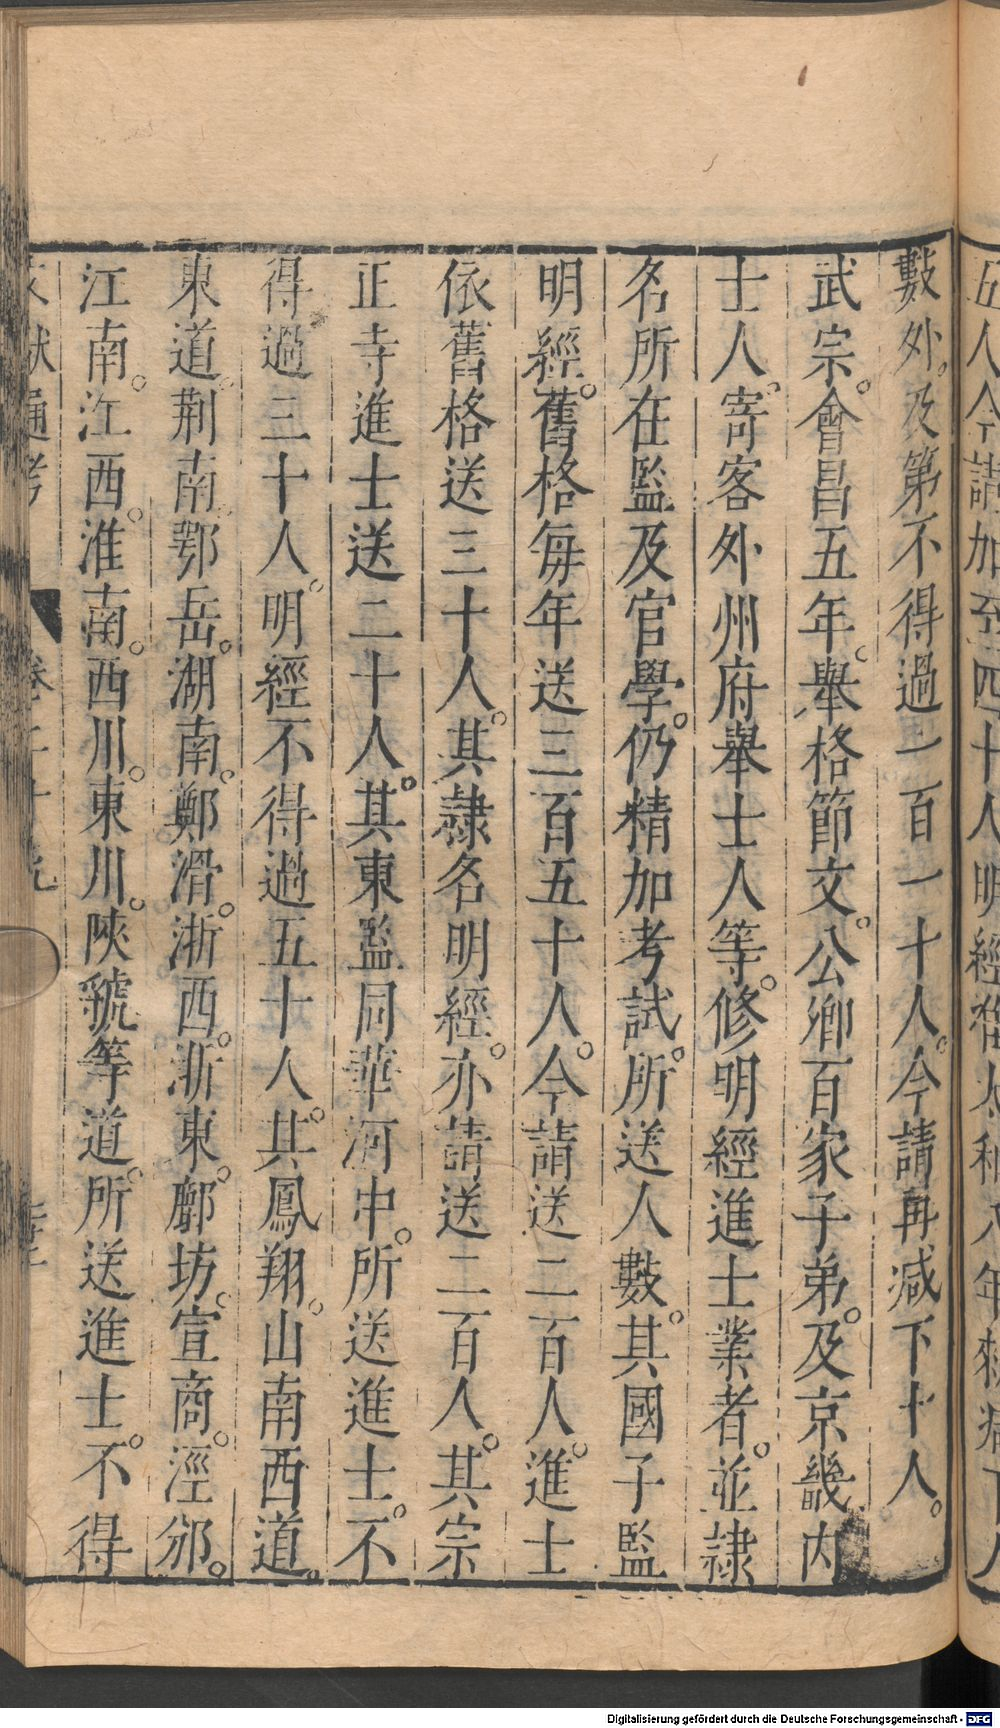 五人今請加至四十人明經
數外。及第不得過一百一十人。今請再减下十人。
武宗。會昌五年。舉格節文。公卿百家子弟。及京畿內
士人。寄客外州府舉士人等。修明經進士業者。並隷
名所在監及官學。仍精加考試。所送人數。其國子監
明經。舊格每年送三百五十人。今請送二百人。進士
依舊格送三十人。其隷名明經。亦請送二百人。其宗
正寺進士送二十人。其東監同華河中。所送進士。不
得過三十人。明經不得過五十人。其鳳翔。山南西道。
東道。荆南。鄂岳。湖南。鄭滑。浙西。浙東。鄜坊。宣商。涇邠。
江南。江西。淮南。西川。東川。陝虢等道。所送進士。不得
文獻通考 卷二十九
Digitalisierung gefördert durch die Deutsche Forschungsgemeinschaft - DFG